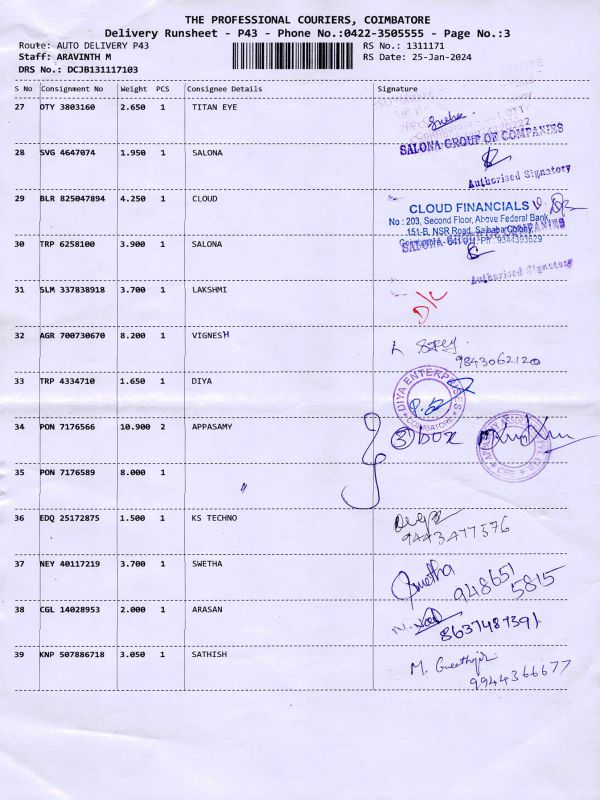 THE PROFESSIONAL COURIERS, COIMBATORE
Delivery Runsheet - P43 - Phone No.:0422-3505555 - Page No.:3
Route: AUTO DELIVERY P43 RS No.: 1311171
Staff: ARAVINTH M RS Date: 25-Jan-2024
DRS No.: DCJB131117103
S No Consignment No Weight PCS Consignee Details Signature
27 DTY 3803160 2.650 1 TITAN EYE
SALONA GROUP OF COMPANIES
28 SVG 4647074 1.950 1 SALONA
Authorised Signatory
29 BLR 825047894 4.250 1 CLOUD
CLOUD FINANCIALS
No : 203, Second Floor, Above Federal Bank,
151-B, NSR Road, Saibaba Colony,
30 TRP 6258100 3.900 1 SALONA
Coimbatore - 641 011 Ph : 9344393629
Authorised Signatory
31 SLM 337838918 3.700 1 LAKSHMI D/C
32 AGR 700730670 8.200 1 VIGNESH
9843062120
33 TRP 4334710 1.650 1 DIYA
DIYA ENTERPRISES
COIMBATORE
34 PON 7176566 10.900 2 APPASAMY 3 box
35 PON 7176589 8.000 1 "
36 EDQ 25172875 1.500 1 KS TECHNO
9443477576
37 NEY 40117219 3.700 1 SWETHA Swetha
948651
5815
38 CGL 14028953 2.000 1 ARASAN
8637487391
39 KNP 507886718 3.050 1 SATHISH M.
9944366677